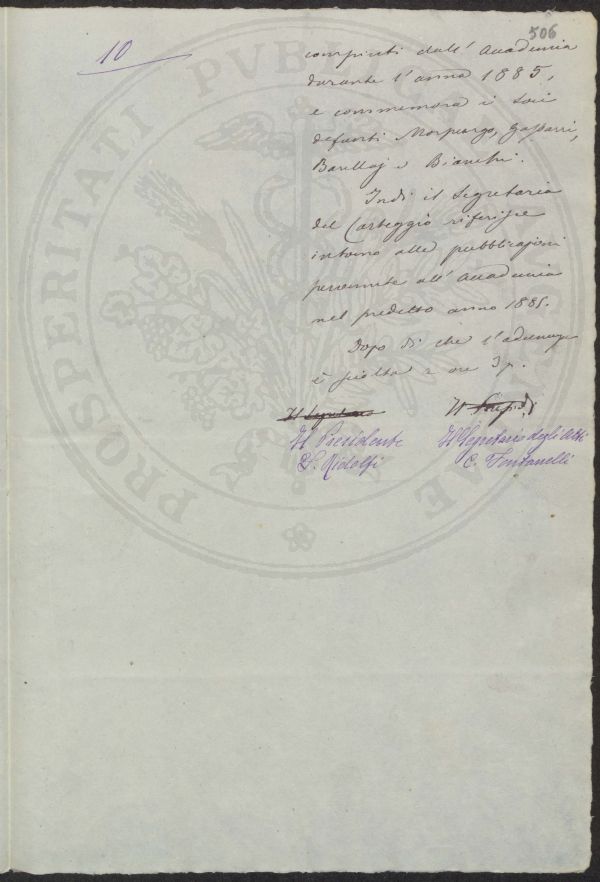 506
10
compiuti dall' Accademia
durante l'anno 1885,
e commemora i soci
defunti Morpurgo, Gasparri,
Barellaj e Bianchi.
Indi il Segretario
del Carteggio riferisce
intorno alle pubblicazioni
pervenute all' Accademia
nel predetto anno 1885.
Dopo di che l'adunanza
è sciolta a ore 3 p.
Il Segretario Il Presid.
Il Presidente Il Segretario degli Atti
L. Ridolfi C. Fontanelli
PROSPERITATI PVBLICAE AVGENDAE